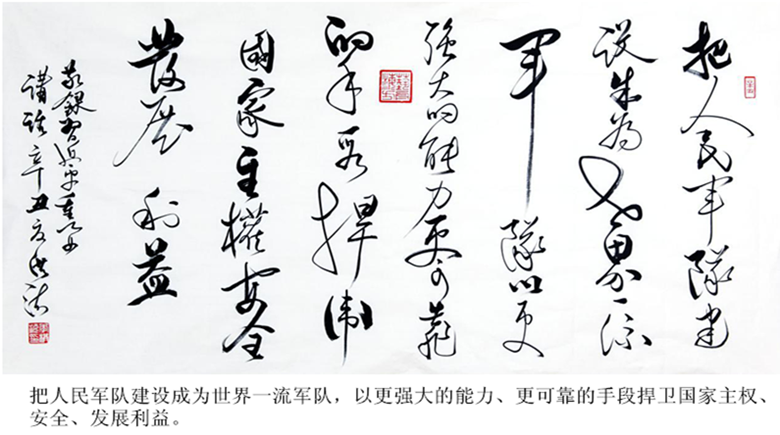 把人民军隊建
设成为世界一流
军隊以更
强大的能力更可靠
的手段捍衛
國家主權安全
發展利益
敬録習近平重要
講話辛丑夏
把人民军队建设成为世界一流军队，以更强大的能力、更可靠的手段捍卫国家主权、
安全、发展利益。